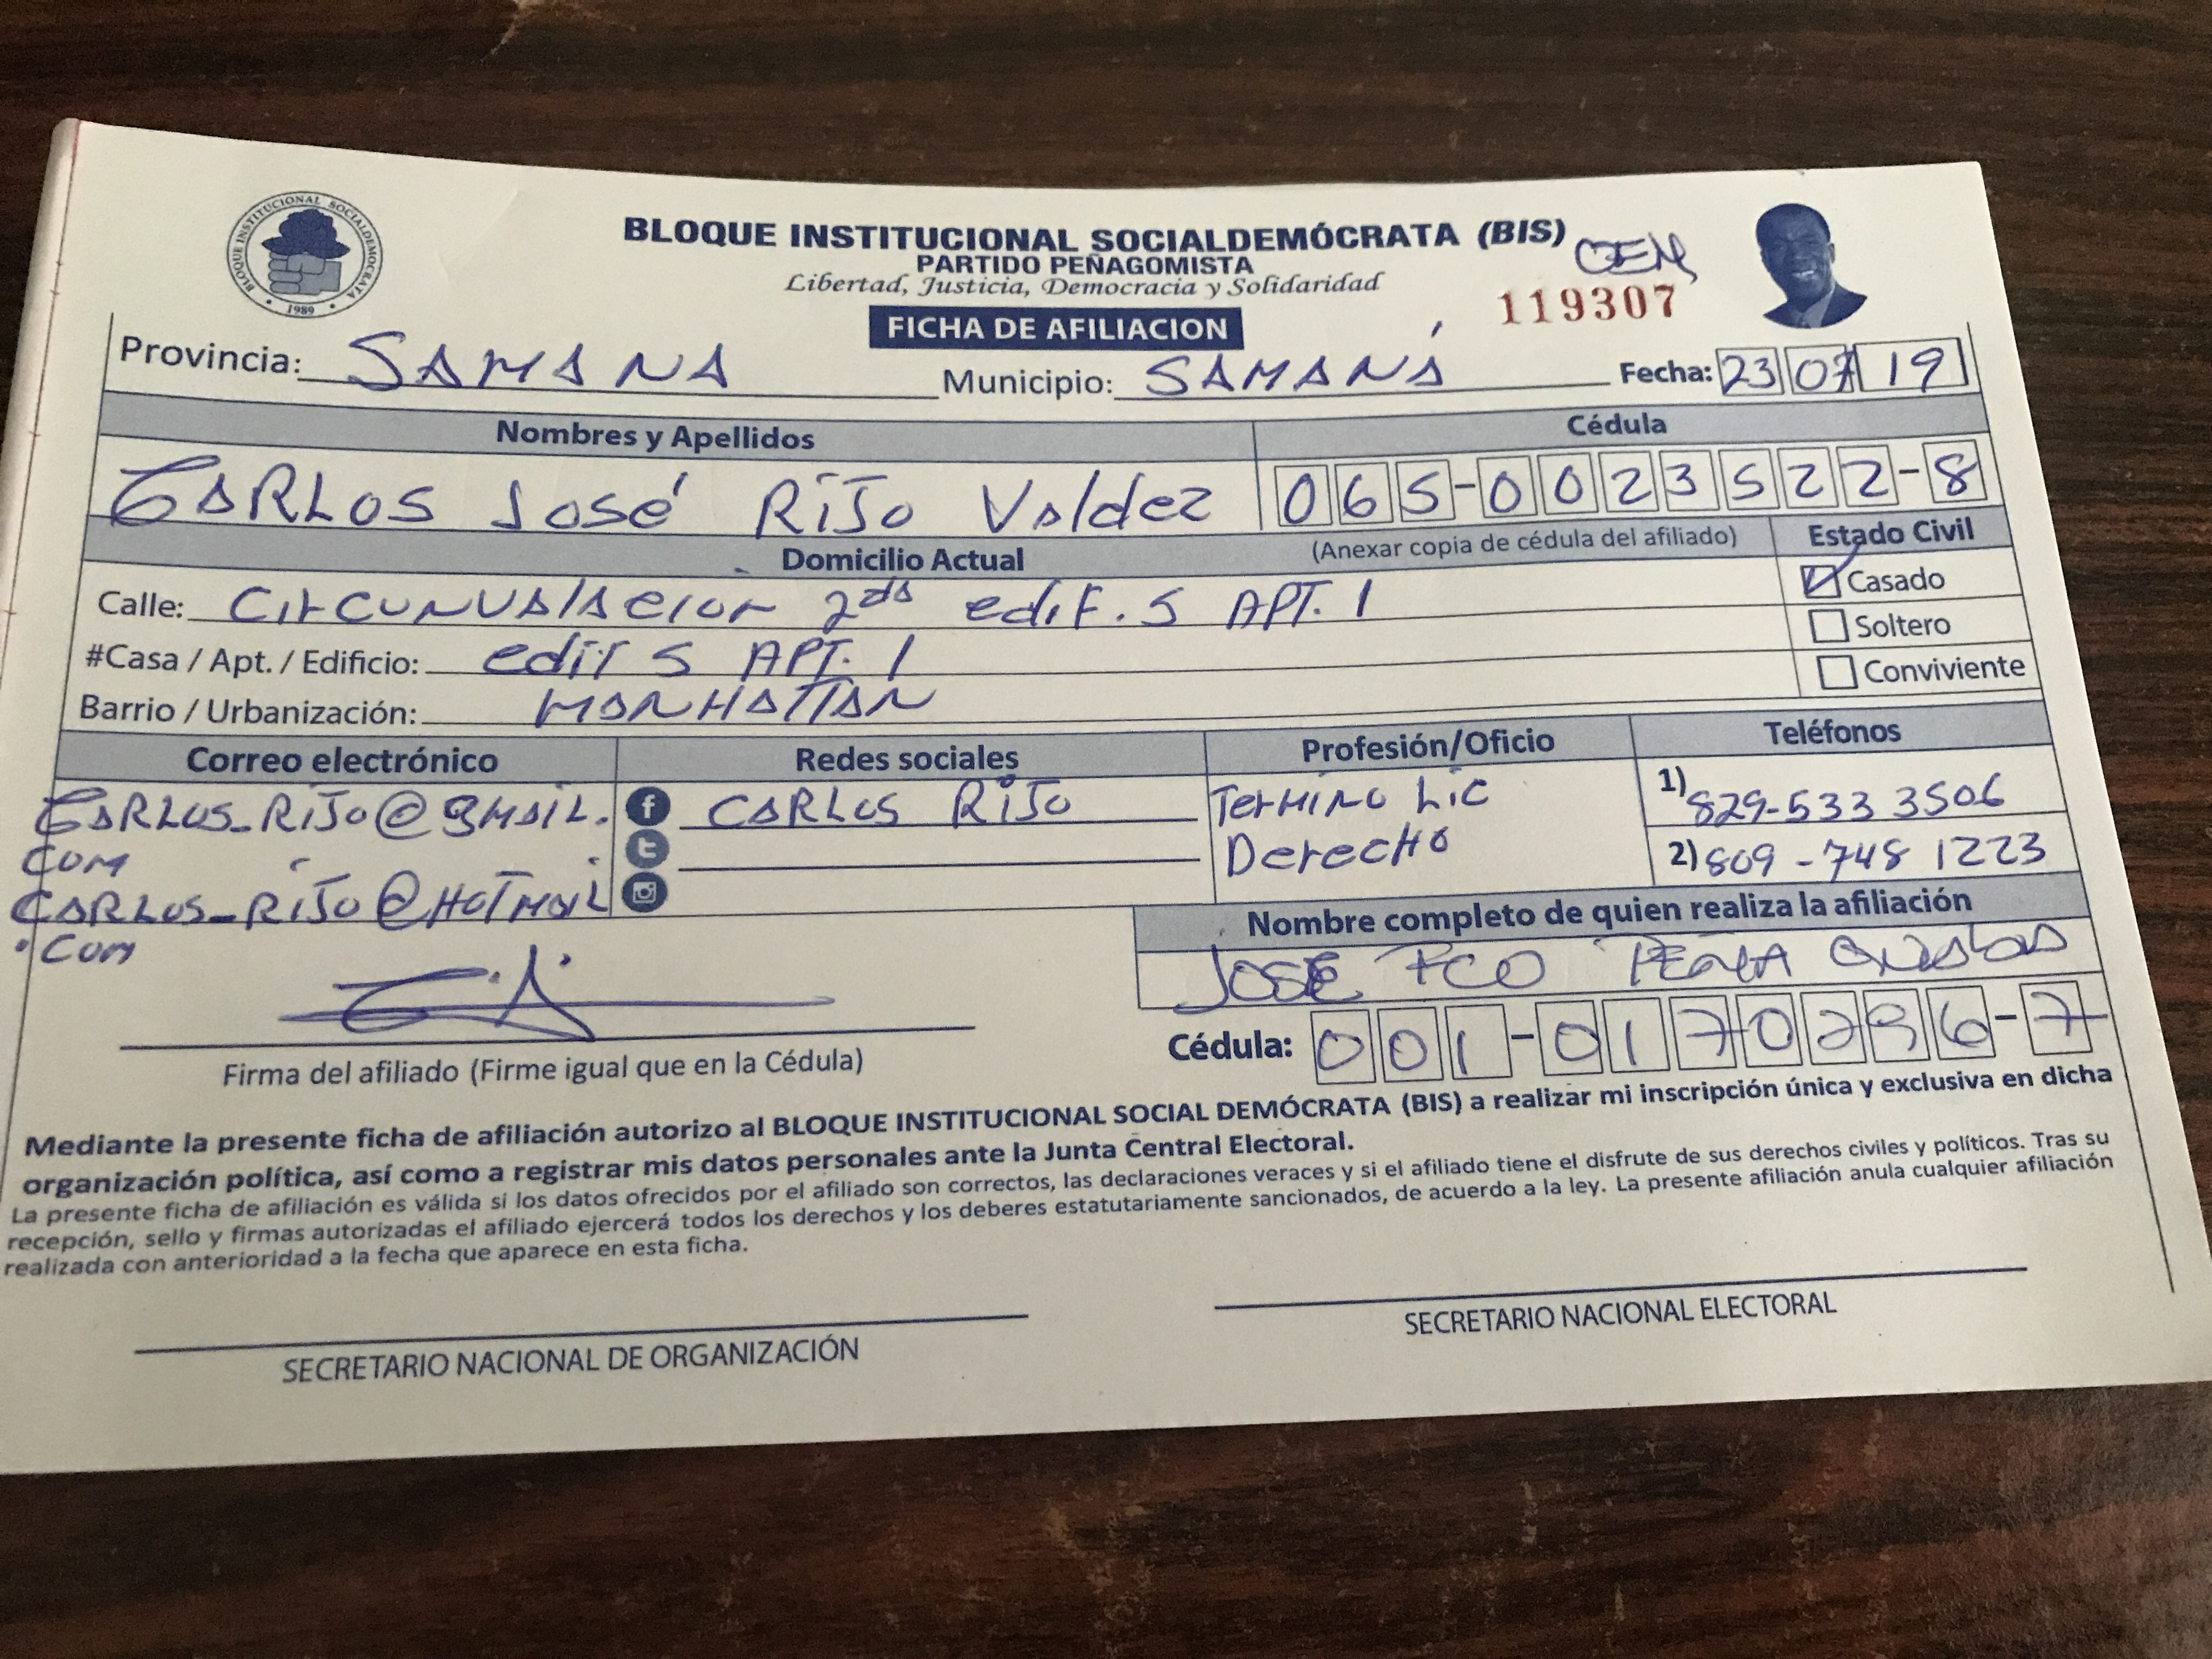 BLOQUE INSTITUCIONAL SOCIALDEMOCRATA
1989
BLOQUE INSTITUCIONAL SOCIALDEMÓCRATA (BIS)
PARTIDO PEÑAGOMISTA
Libertad, Justicia, Democracia y Solidaridad
CEN
119307
FICHA DE AFILIACION
Provincia: SAMANA Municipio: SAMANÁ Fecha: 23 07 19
Nombres y Apellidos Cédula
CARLOS José RiJo Valdez 065-0023522-8
Domicilio Actual (Anexar copia de cédula del afiliado) Estado Civil
Calle: CirCUNValAcion 2da edif. 5 APT. 1 Casado
#Casa / Apt. / Edificio: edif 5 APT. 1 Soltero
Barrio / Urbanización: MANHATTAN Conviviente
Correo electrónico Redes sociales Profesión/Oficio Teléfonos
CARLOS_RiJo@gmail. CARLOS RiJo TerMiNo Lic 1) 829-533 3506
com DerecHo 2) 809-748 1223
CARLOS_RiJo@HoTmail
.Com
Nombre completo de quien realiza la afiliación
JOSÉ FCO PEÑA
Cédula: 001-0170296-7
Firma del afiliado (Firme igual que en la Cédula)
Mediante la presente ficha de afiliación autorizo al BLOQUE INSTITUCIONAL SOCIAL DEMÓCRATA (BIS) a realizar mi inscripción única y exclusiva en dicha
organización política, así como a registrar mis datos personales ante la Junta Central Electoral.
La presente ficha de afiliación es válida si los datos ofrecidos por el afiliado son correctos, las declaraciones veraces y si el afiliado tiene el disfrute de sus derechos civiles y políticos. Tras su
recepción, sello y firmas autorizadas el afiliado ejercerá todos los derechos y los deberes estatutariamente sancionados, de acuerdo a la ley. La presente afiliación anula cualquier afiliación
realizada con anterioridad a la fecha que aparece en esta ficha.
SECRETARIO NACIONAL DE ORGANIZACIÓN SECRETARIO NACIONAL ELECTORAL